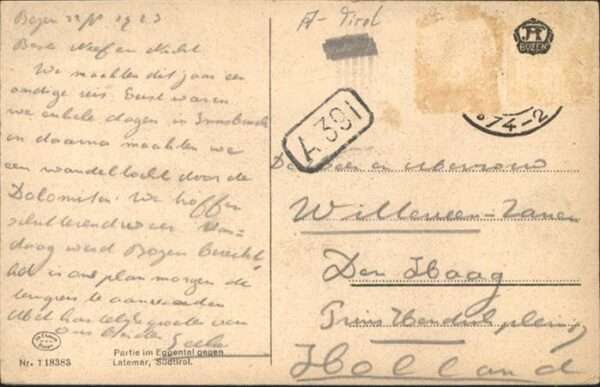 Bozen 22/7 1923
Beste Neef en Nicht
We maakten dit jaar een
reis. Eerst waren
we enkele dagen in Innsbruck
en daarna maakten we
een wandeltocht door de
Dolomieten. We troffen
schitterend weer.
daag werd Bozen bereikt
het is ons plan morgen de
terugreis te aanvaarden
Met hartelijke groeten van
ons beiden
Nr. 118383
Partie im Eggental gegen
Latemar, Südtirol.
A-Tirol
BOZEN
74-2
A 391
De Heer en Mevrouw
Willemsen-
Den Haag
Prins Hendrikplein
Holland